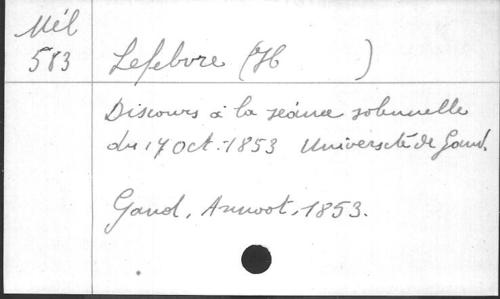 Mél
583
Lefebvre (H )
Discours à la séance solennelle
du 17 Oct. 1853 Université de Gand.
Gand, Annoot, 1853.